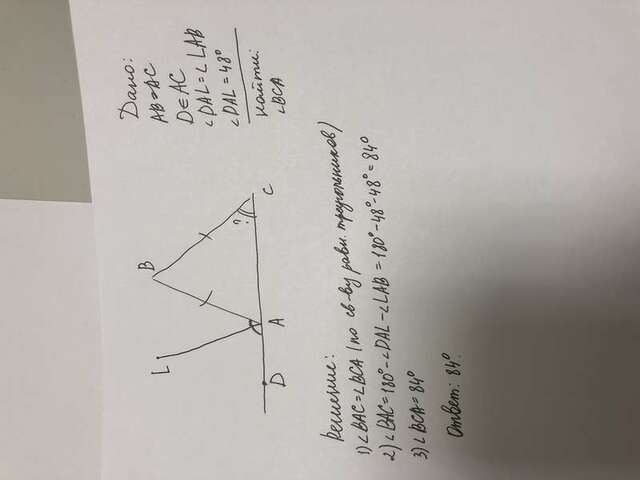 L
B
D
A
C
?
Дано:
AB=AC
D∈AC
∠DAL=∠LAB
∠DAL=48°
найти:
∠BCA
Решение:
1) ∠BAC=∠BCA (по св-ву равн. треугольников)
2) ∠BAC=180°-∠DAL-∠LAB=180°-48°-48°=84°
3) ∠BCA=84°
Ответ: 84°.